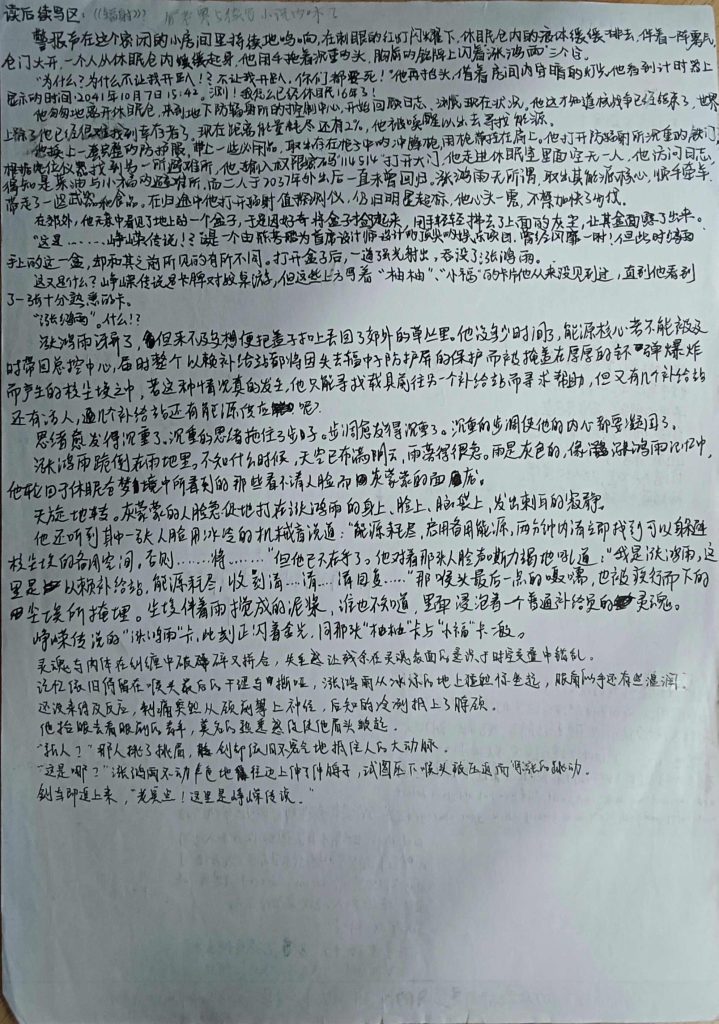 读后续写区：《《辐射》》？
警报声在这个密闭的小房间里持续地鸣响，在刺眼的红灯闪耀下，休眠仓内的液体缓缓排去，伴着一阵雾气，
仓门大开，一个人从休眠仓内缓缓起身，他用手拖着沉重的头，胸前的铭牌上闪着“涨鸿雨”三个字。
“为什么？为什么不让我开趴！？不让我开趴，你们都要死！”他再抬头，借着房间内的灯光，他看到计时器上
显示的时间：2041年10月7日15:42。“淦！我怎么已经休眠16年了！
他匆匆地离开休眠仓，来到地下防辐射所的控制中心，开始回顾日志，浏览现在状况。他这才知道核战争已经结束了，世界
上除了他已经很难找到幸存者了。现在距离能量耗尽还有2%，他被唤醒以出去寻找能源。
他换上一套完整的防护服，带上一些必需品，取出存在柜子中的冲锋枪，用枪带挂在肩上。他打开防辐射所沉重的铁门，
根据定位仪器找到另一所避难所，他输入权限密码114514打开大门，他走进休眠室里面空无一人，他访问日志，
得知是柚与小福的避难所，而二人于2037年外出后一直未曾回归。涨鸿雨无所谓，取出其能源核心，快手牵羊，
带走了一些武器和食品。在归途中他打开辐射值探测仪，仍旧明显超标，他心头一震，不禁加快了步伐。
在郊外，他无意中看见了地上的一个盒子，于是因好奇将盒子捡起来，用手轻轻拂去了上面的灰尘，让其全面露了出来。
“这是……峥嵘传说！？这是一个由为首席设计师设计的顶尖的娱乐项目，曾经风靡一时！但此时鸿雨
手上的这一盒，却和其之前所见的有所不同。打开盒子后，一道强光射出，吞没了涨鸿雨。
这又是什么？峥嵘传说是卡牌对战桌游，但这些上方写着“柚柚”、“小福”的卡片他从来没见到过，直到他看到
了一张十分熟悉的卡。
“涨鸿雨”。什么！？
涨鸿雨讶异了，但来不及多想便把盖子扣上丢回了郊外的草丛里。他没多少时间了，能源核心若不能被及
时带回总控中心，届时整个以赖补给站都将因失去辐中子防护屏的保护而被掩盖在厚厚的弹爆炸
而产生的核尘埃之中，若这种情况真的发生，他只能寻找载具前往另一个补给站而寻求帮助，但又有几个补给站
还有活人，遑几个补给站还有能源供应呢？
思绪愈发得沉重了。沉重的思绪拖住了步子。步调愈发得沉重了。沉重的步调使他的内心都要凝固了。
涨鸿雨跪倒在雨地里。不知什么时候，天空已布满阴云，雨落得很急。雨是灰色的，像涨鸿雨记忆中，
他轮回于休眠仓梦境中所看到的那些看不清人脸而灰蒙蒙的面庞。
天旋地转。灰蒙蒙的人脸急促地打在涨鸿雨的身上、脸上、脑袋上，发出刺耳的寂静。
他还听到其中一张人脸用冰冷的机械音说道：“能源耗尽，启用备用能源，两分钟内请立即找到可以躲避
核尘埃的备用空间，否则……将……”但他已不在乎了。他对着那张人脸声嘶力竭地吼道：“我是涨鸿雨，这
里是以赖补给站，能源耗尽，收到请……请……请回复……”那喉头最后一点的嗫嚅，也被骤行而下的
尘埃所掩埋。尘埃伴着雨搅成的泥浆，谁也不知道，里面浸泡着一个普通补给员的灵魂。
峥嵘传说的“涨鸿雨”卡，此刻正闪着金光，同那张“柚柚”卡与“小福”卡一般。
灵魂与肉体在纠缠中破碎又拼合，失重感让残余在灵魂表面的意识于时空交叠中错乱。
记忆依旧停留在喉头最后的干涩与撕哑，涨鸿雨从冰冷的地上猛地惊坐起，眼角似乎还有些湿润。
还没等待反应，刺痛突然从颈前攀上神经，后知的冷剑抵上了脖颈。
他抬眼去看眼前的来手，莫名的熟悉感促使他眉头皱起。
“敌人？”那人挑了挑眉，剑却依旧不客气地抵住人的大动脉。
“这是哪？”涨鸿雨不动声色地往边上伸了伸脖子，试图压下喉头被压迫而紧张的跳动。
剑当即追上来，“老莫尘！这里是峥嵘传说。”